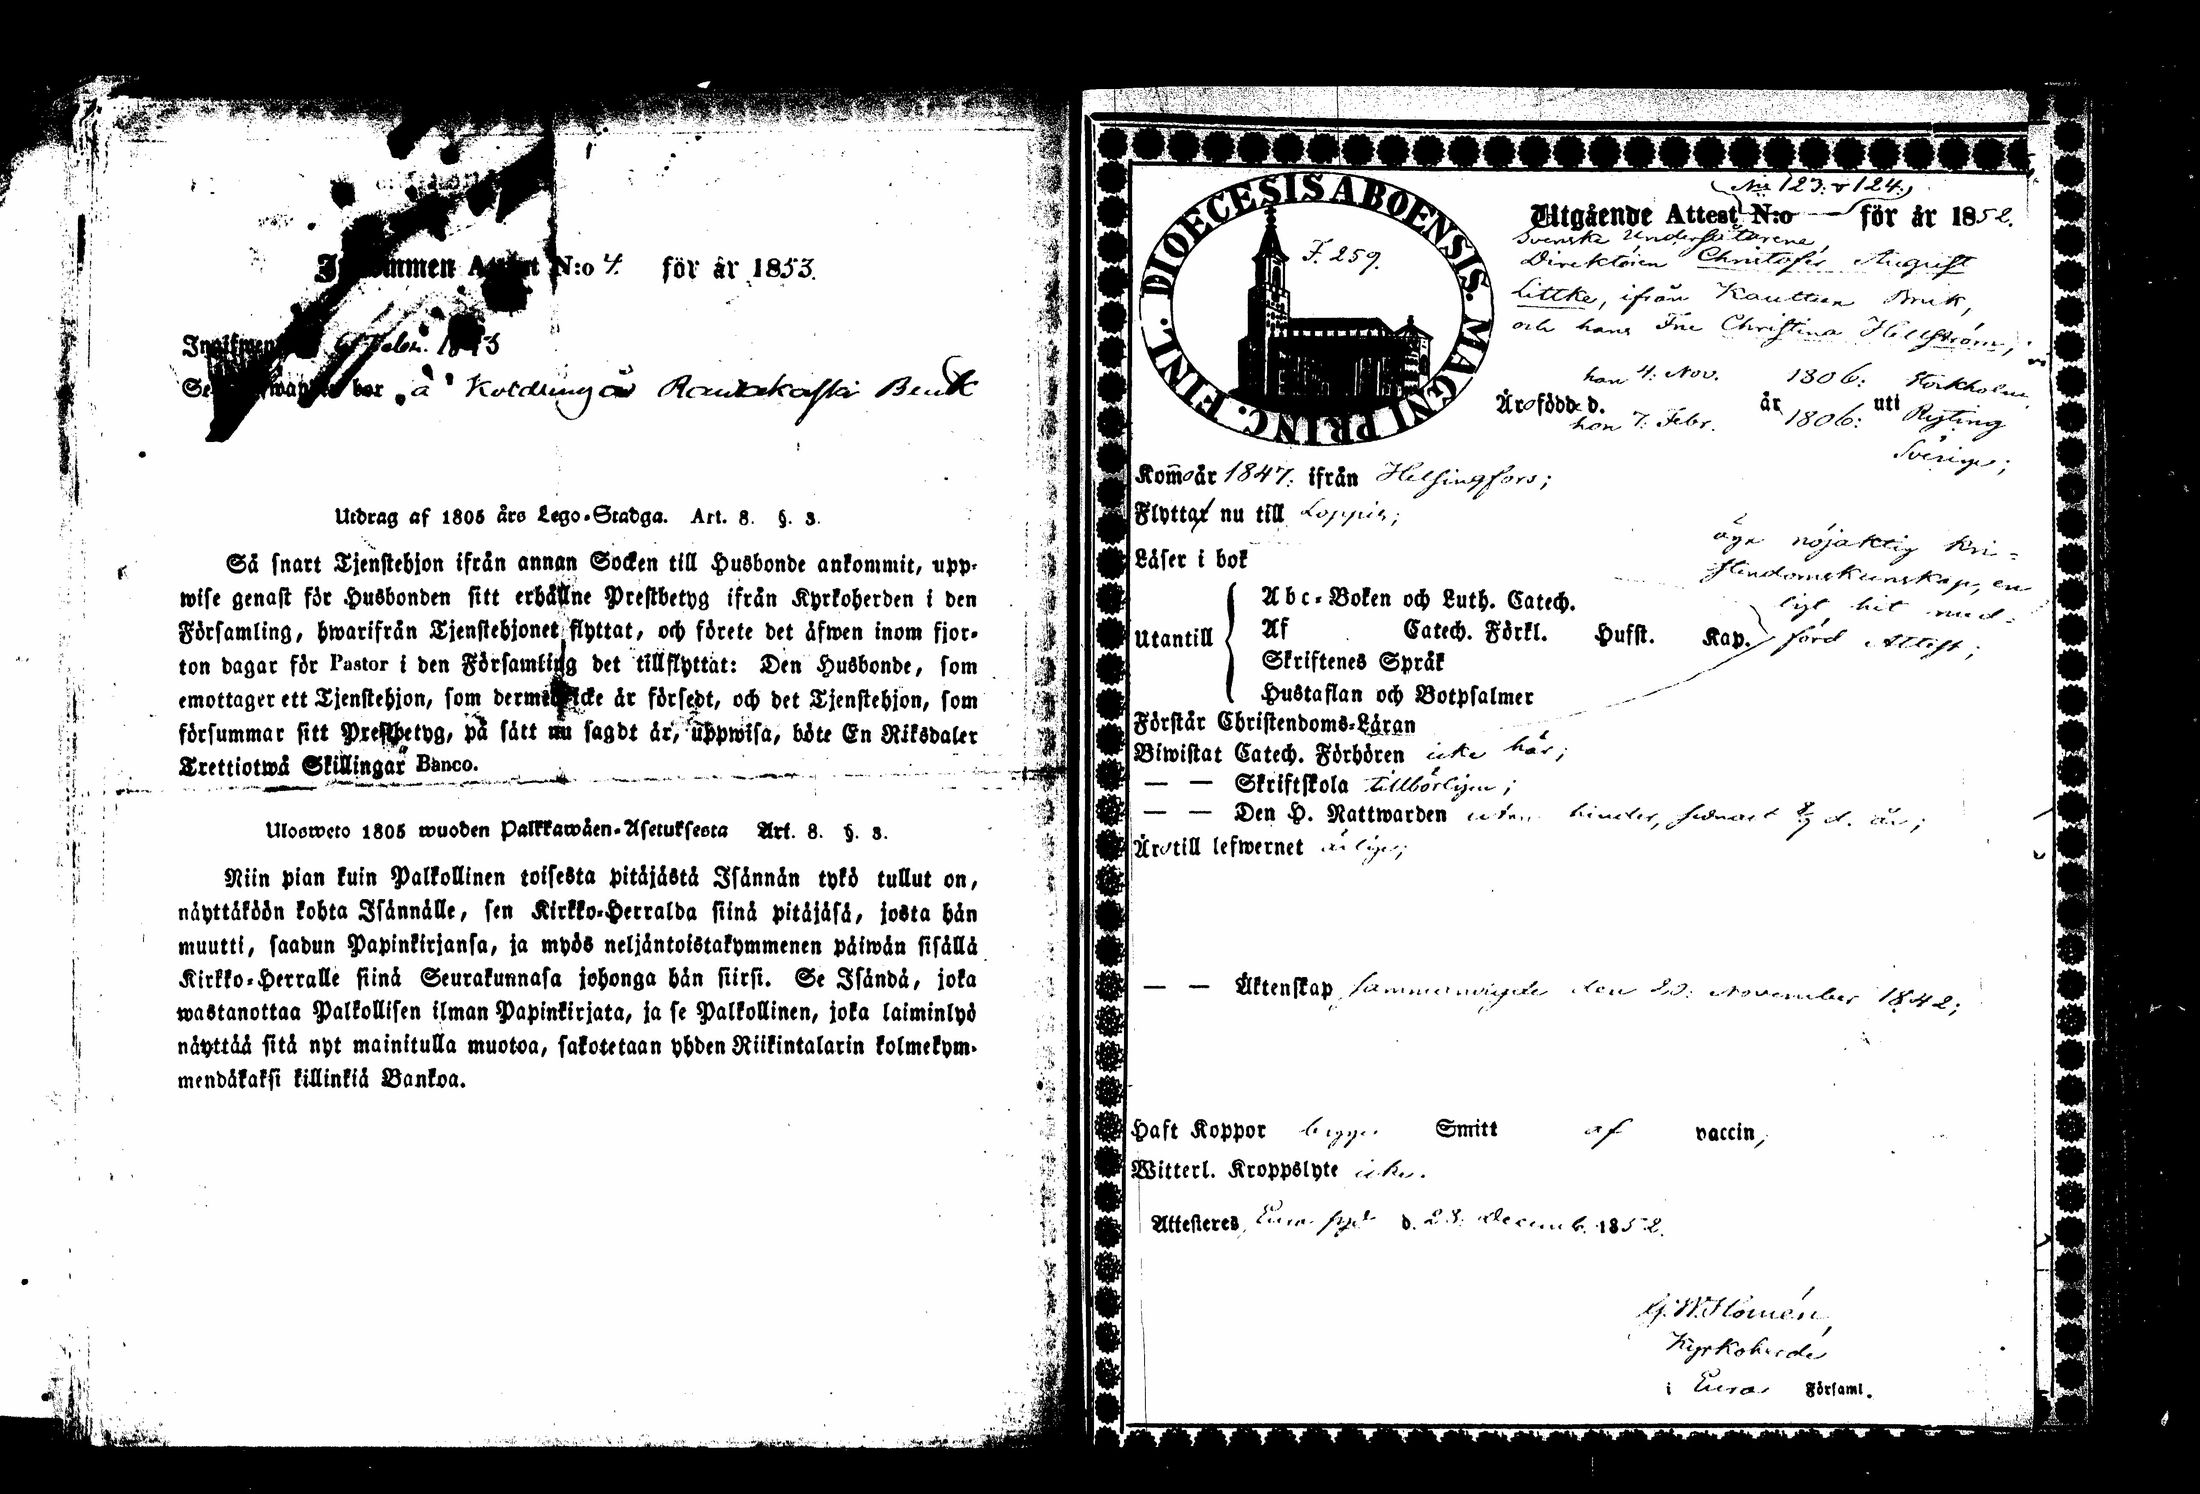 Inkommen Attest N:o 4. för år 1853.
Febr. 1853
bor å Raudakoski Bruk
Utdrag af 1805 års Lego-Stadga. Art. 8. §. 3.
Så snart Tjenstehjon ifrån annan Socken till Husbonde ankommit, upp-
wise genast för Husbonden sitt erhållne Prestbetyg ifrån Kyrkoherden i den
Församling, hwarifrån Tjenstehjonet flyttat, och förete det äfwen inom fjor-
ton dagar för Pastor i den Församling det tillflyttat: Den Husbonde, som
emottager ett Tjenstehjon, som dermed icke är försedt, och det Tjenstehjon, som
försummar sitt Prestbetyg, på sätt nu sagdt är, uppwisa, böte En Riksdaler
Trettiotwå Skillingar Banco.
Ulosweto 1805 wuoden Palkkawäen-Asetuksesta Art. 8. §. 3.
Niin pian kuin Palkollinen toisesta pitäjästä Isännän tykö tullut on,
näyttäköön kohta Isännälle, sen Kirkko-Herralda siinä pitäjäsä, josta hän
muutti, saadun Papinkirjansa, ja myös neljäntoistakymmenen päiwän sisällä
Kirkko-Herralle siinä Seurakunnasa johonga hän siirsi. Se Isändä, joka
wastanottaa Palkollisen ilman Papinkirjata, ja se Palkollinen, joka laiminlyö
näyttää sitä nyt mainitulla muotoa, sakotetaan yhden Riikintalarin kolmekym-
mendäkaksi killinkiä Bankoa.
DIOECESIS ABOENSIS. MAGNI PRINC. FINL.
F. 259.
N:is 123. & 124.
Utgående Attest N:o för år 1852.
Svenska Undersåtarene,
Direktören Christofer August
Littke, ifrån Kauttua Bruk,
och hans Fru Christina Hellström;
han 4: Nov. 1806: Stockholm
Äro födde d. år uti
hon 7. Febr. 1806: Ryting
Sverige;
Kommo år 1847: ifrån Helsingfors;
Flytta nu till Loppis;
Läser i bok
äga nöjaktig kri-
stendomskunskap, en-
ligt hit med-
förd Attest;
Utantill
Abc-Boken och Luth. Catech.
Af Catech. Förkl. Hufst. Kap.
Skriftenes Språk
Hustaflan och Botpsalmer
Förstår Christendoms-Läran
Biwistat Catech. Förhören icke här;
— — Skriftskola tillbörligen;
— — Den H. Nattwarden utan hinder, senast d. år;
Äro till lefwernet ärlige;
— — Äktenskap sammanvigde den 20: November 1842;
Haft Koppor begge Smitt af vaccin;
Witterl. Kroppslyte icke.
Attesteres, Eura d. 23: Decemb. 1852.
G. W. Homén,
Kyrkoherde
i Eura Församl.